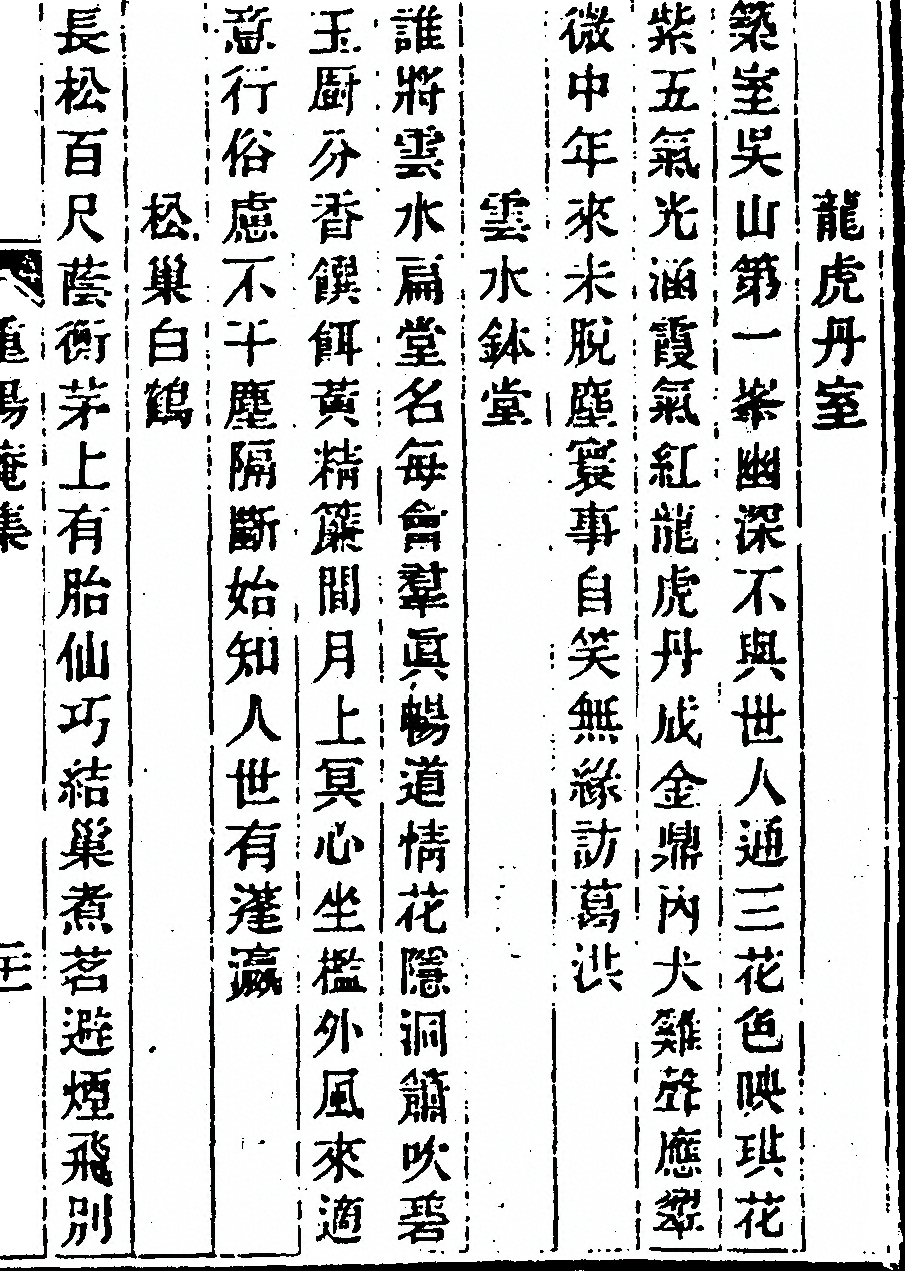 龍虎丹室
築室吳山第一峯幽深不與世人通三花色映琪花
紫五氣光涵霞氣紅龍虎丹成金鼎內犬雞聲應翠
微中年來未脫塵寰事自笑無緣訪葛洪
雲水鉢堂
誰將雲水扁堂名每會羣眞暢道情花隱洞簫吹碧
玉廚分香饌餌黃精簾間月上冥心坐檻外風來適
意行俗慮不干塵隔斷始知人世有蓬瀛
松巢白鶴
長松百尺蔭衡茅上有胎仙巧結巢煮茗避煙飛別
龜陽庵集
二十